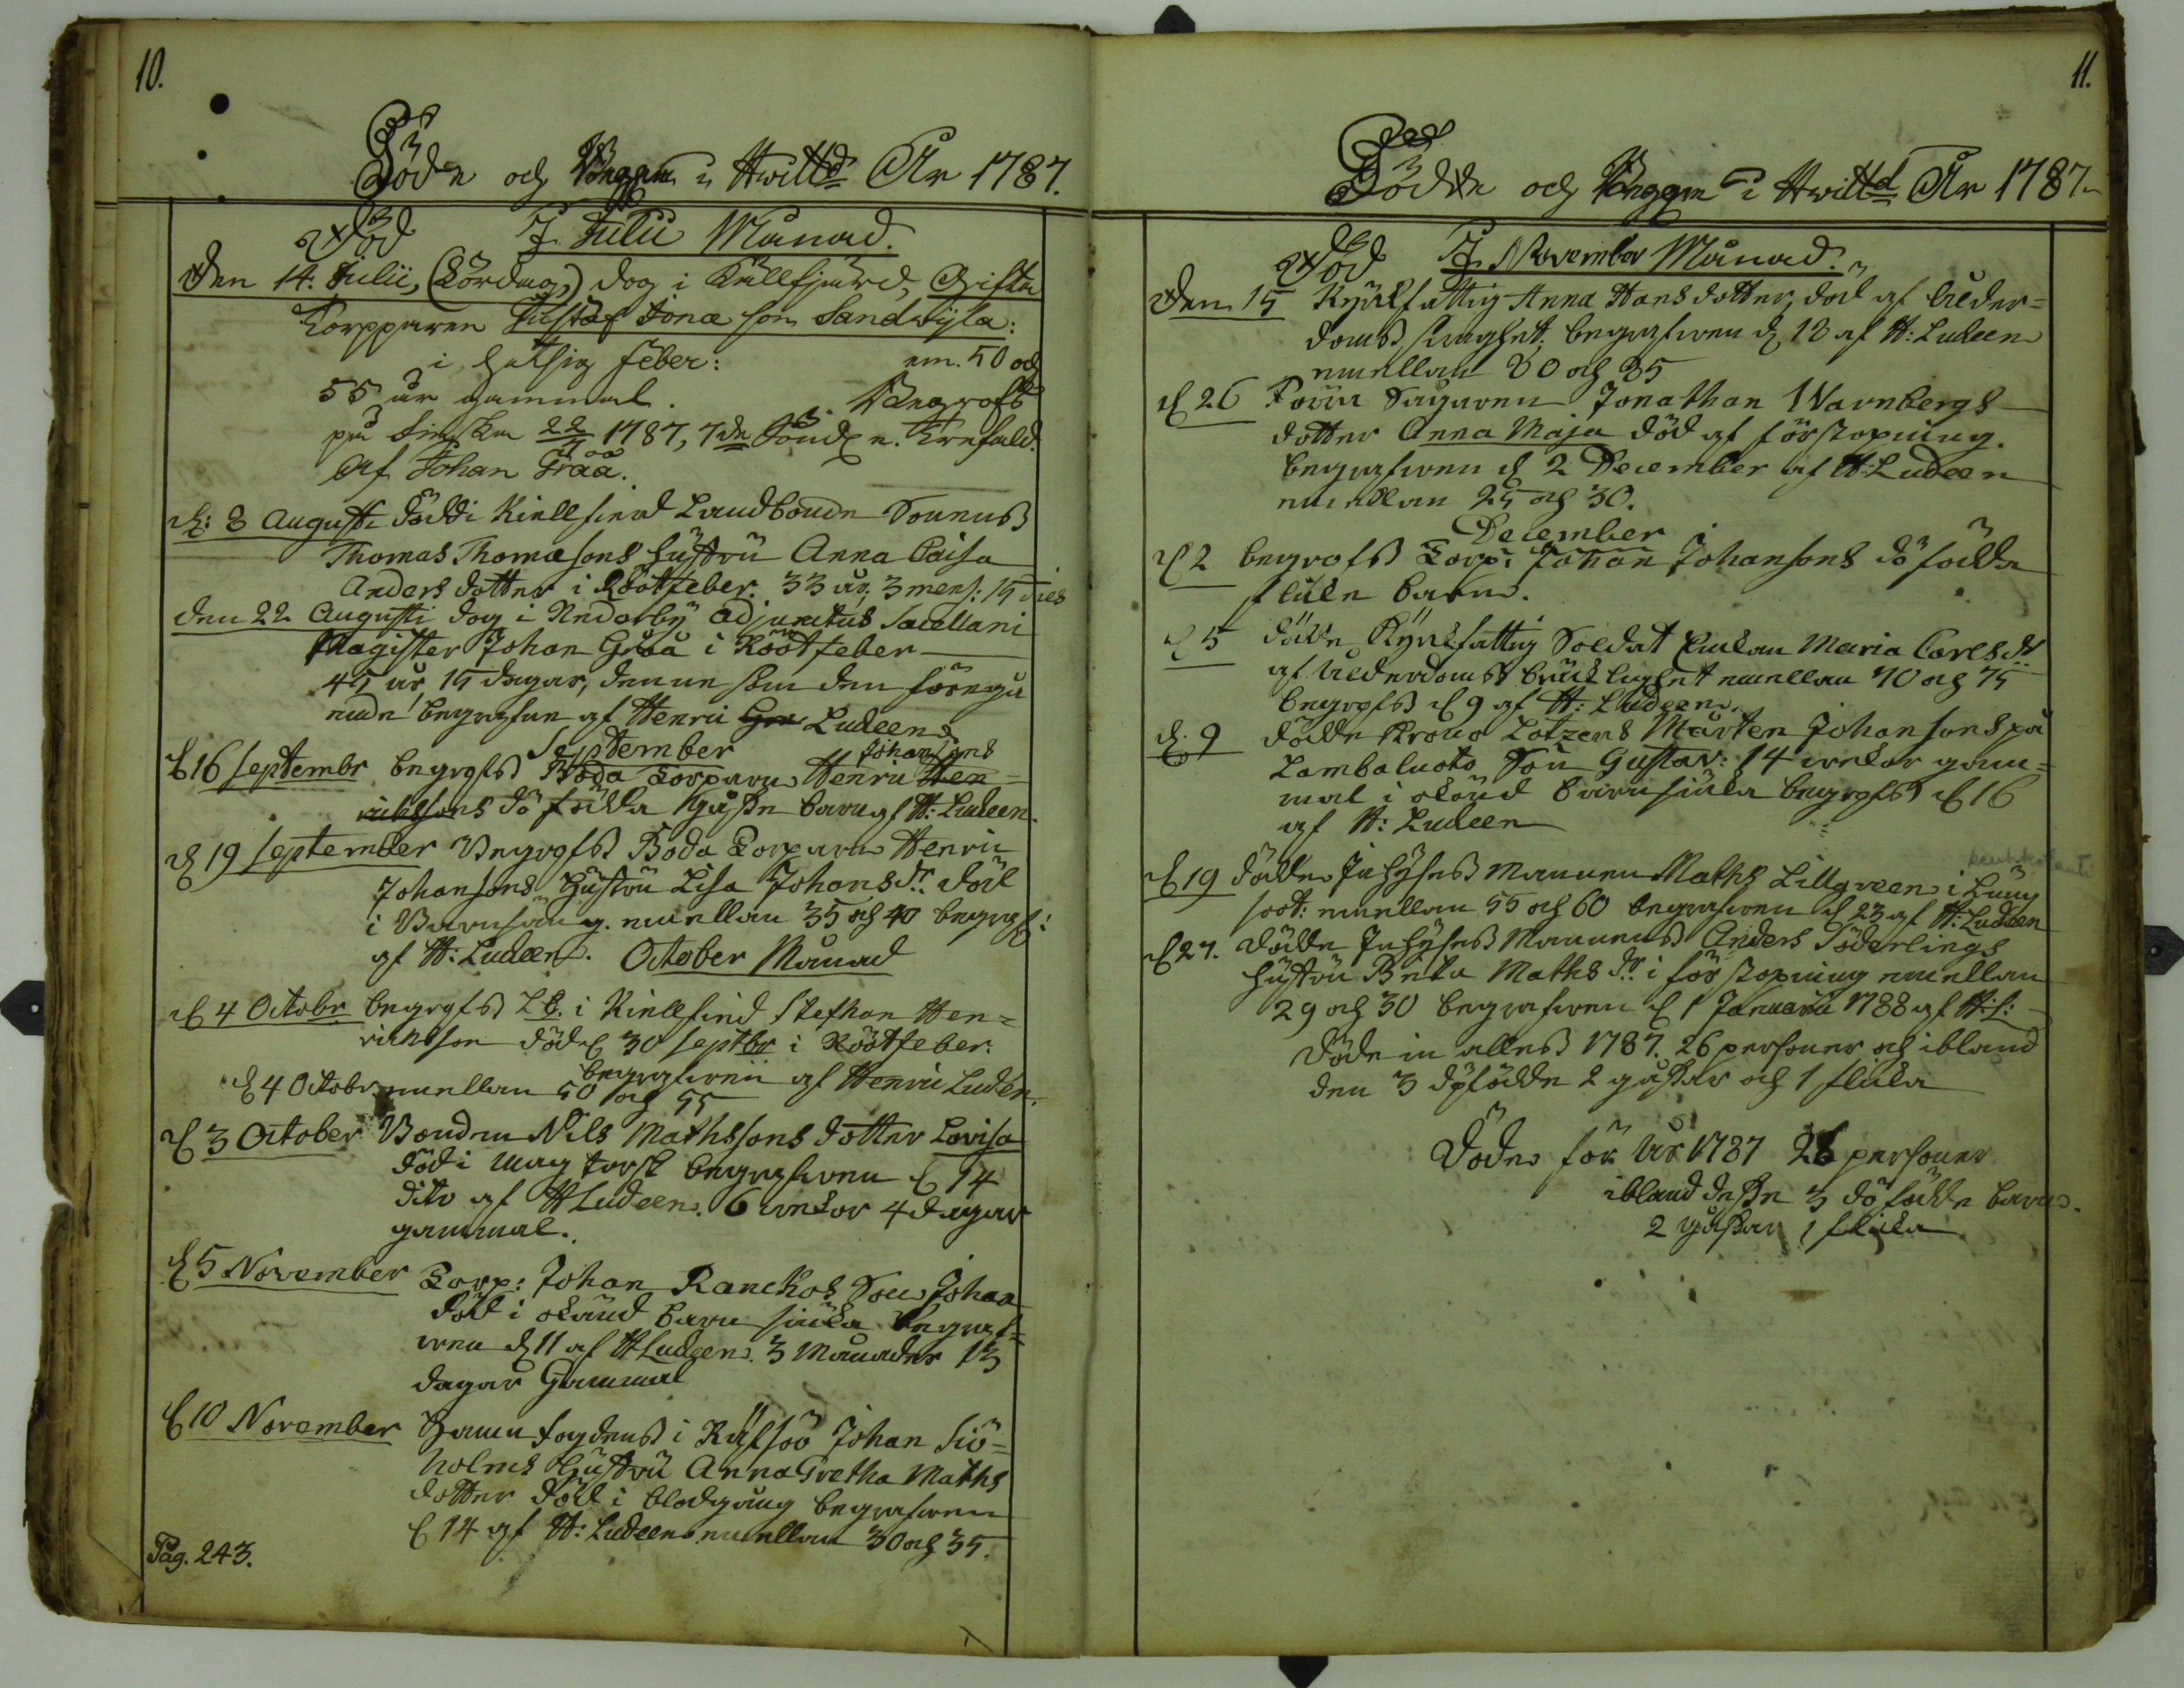 10.
Döde och i Hwittd År 1787.
Död I Julii Månad.
Den 14. Julii, (Lördag,) dog i Källfjärd, Gifta
Torpparen Gustaf Jonæ son Sandwijka:
i hetsig feber: em. 50 och
55 år gammal. Begrofs
på 22/7 1787, 7de Sönd. e. Trefald.
Af Johan Gråå.
d: 8 Augusti Död i Kiellfierd Landbonde Sonens
Thomas Thomæsons hustru Anna Caisa
Anders dotter i Rötfeber. 33 år, 3 mens: 15 dies
den 22 Augusti dog i Nederby Adjunctus Sacellani
Magister Johan Gråå i Rötfeber
45 år 15 dagar, denne som den föregå
ende begrafne af Henric Ludeen
September
d 16 Septembr begrofs Böda Torparen Henric Johansons Hen-
richsons döfödda Gosse barn af H: Ludeen.
d 19 September Begrofs Böda Torparen Henric
Johansons Hustru Lisa Johans dr. död
i Barnsäng. emellan 35 och 40 begrafs:
af H: Ludeen. October Månad
d 4 Octobr begrofs Lb. i Kiellfierd Stefhan Hen-
richson död d 30 Septbr i Rötfeber.
begrafwen
d 4 Octobr emellan 50 och 55 af Henric Luden.
d 3 October Bonden Nils Mathssons dotter Lovisa
död i Mag torsk begrafwen d 14
dito af H Ludeen. 6 wekor 4 dagar
gammal.
d 5 November Torp: Johan Ranckos Son Johan
död i okänd barn siuka begraf-
wen d 11 af H Ludeen. 3 Månader 13
dagar Gammal
d 10 November Hamnfogdens i Räfsöö Johan Siö-
holms Hustru Anna Gretha Maths
dotter död i blodgång begrafwen
d 14 af H: Ludeen emellan 30 och 35.
Pag. 243.
11.
Dödde och i Hwittd År 1787
Död I November Månad.
Den 15 Kyrkfattig Anna Hans dotter, död af Ålder-
doms swaghet; begrafwen d 18 af H: Ludeen
emellan 80 och 85
d 26 Sågaren Jonathan Warnbergs
dotter Anna Maja död af förstopning.
begrafwen d 2 December af H: Ludeen
emellan 25 och 30.
December
d 2 begrofs Torp: Johan Johansons döfödda
flicke barn.
d 5 dödde Kyrkfattig Soldat Enkan Maria Carls dr
af Ålderdoms bräcklighet emellan 70 och 75
begrofs d 9 af H: Ludeen.
d. 9 dödde Krono Lotzens Mårten Johansons på
Lambaluoto Son Gustav: 14 wekor gam-
mal i okänd barnsiuka begrofs d 16
af H: Ludeen
d 19 dödde Inhyses mannen Maths Lillgreen i Lung
soot: emellan 55 och 60 begrafwen d 23 af H: Ludeen
d 27. dödde Inhyses Mannens Anders Söderlings
hustru Brita Maths dr. i förstopning emellan
29 och 30 begrafwen d 1 Januarii 1788 af H: L:
Döde in alles 1787. 26 personer och ibland
den 3 döfödde 2 gossar och 1 flicka
Döde för År 1787 26 personer
ibland desse 3 döfödde barn.
2 gossar 1 flicka